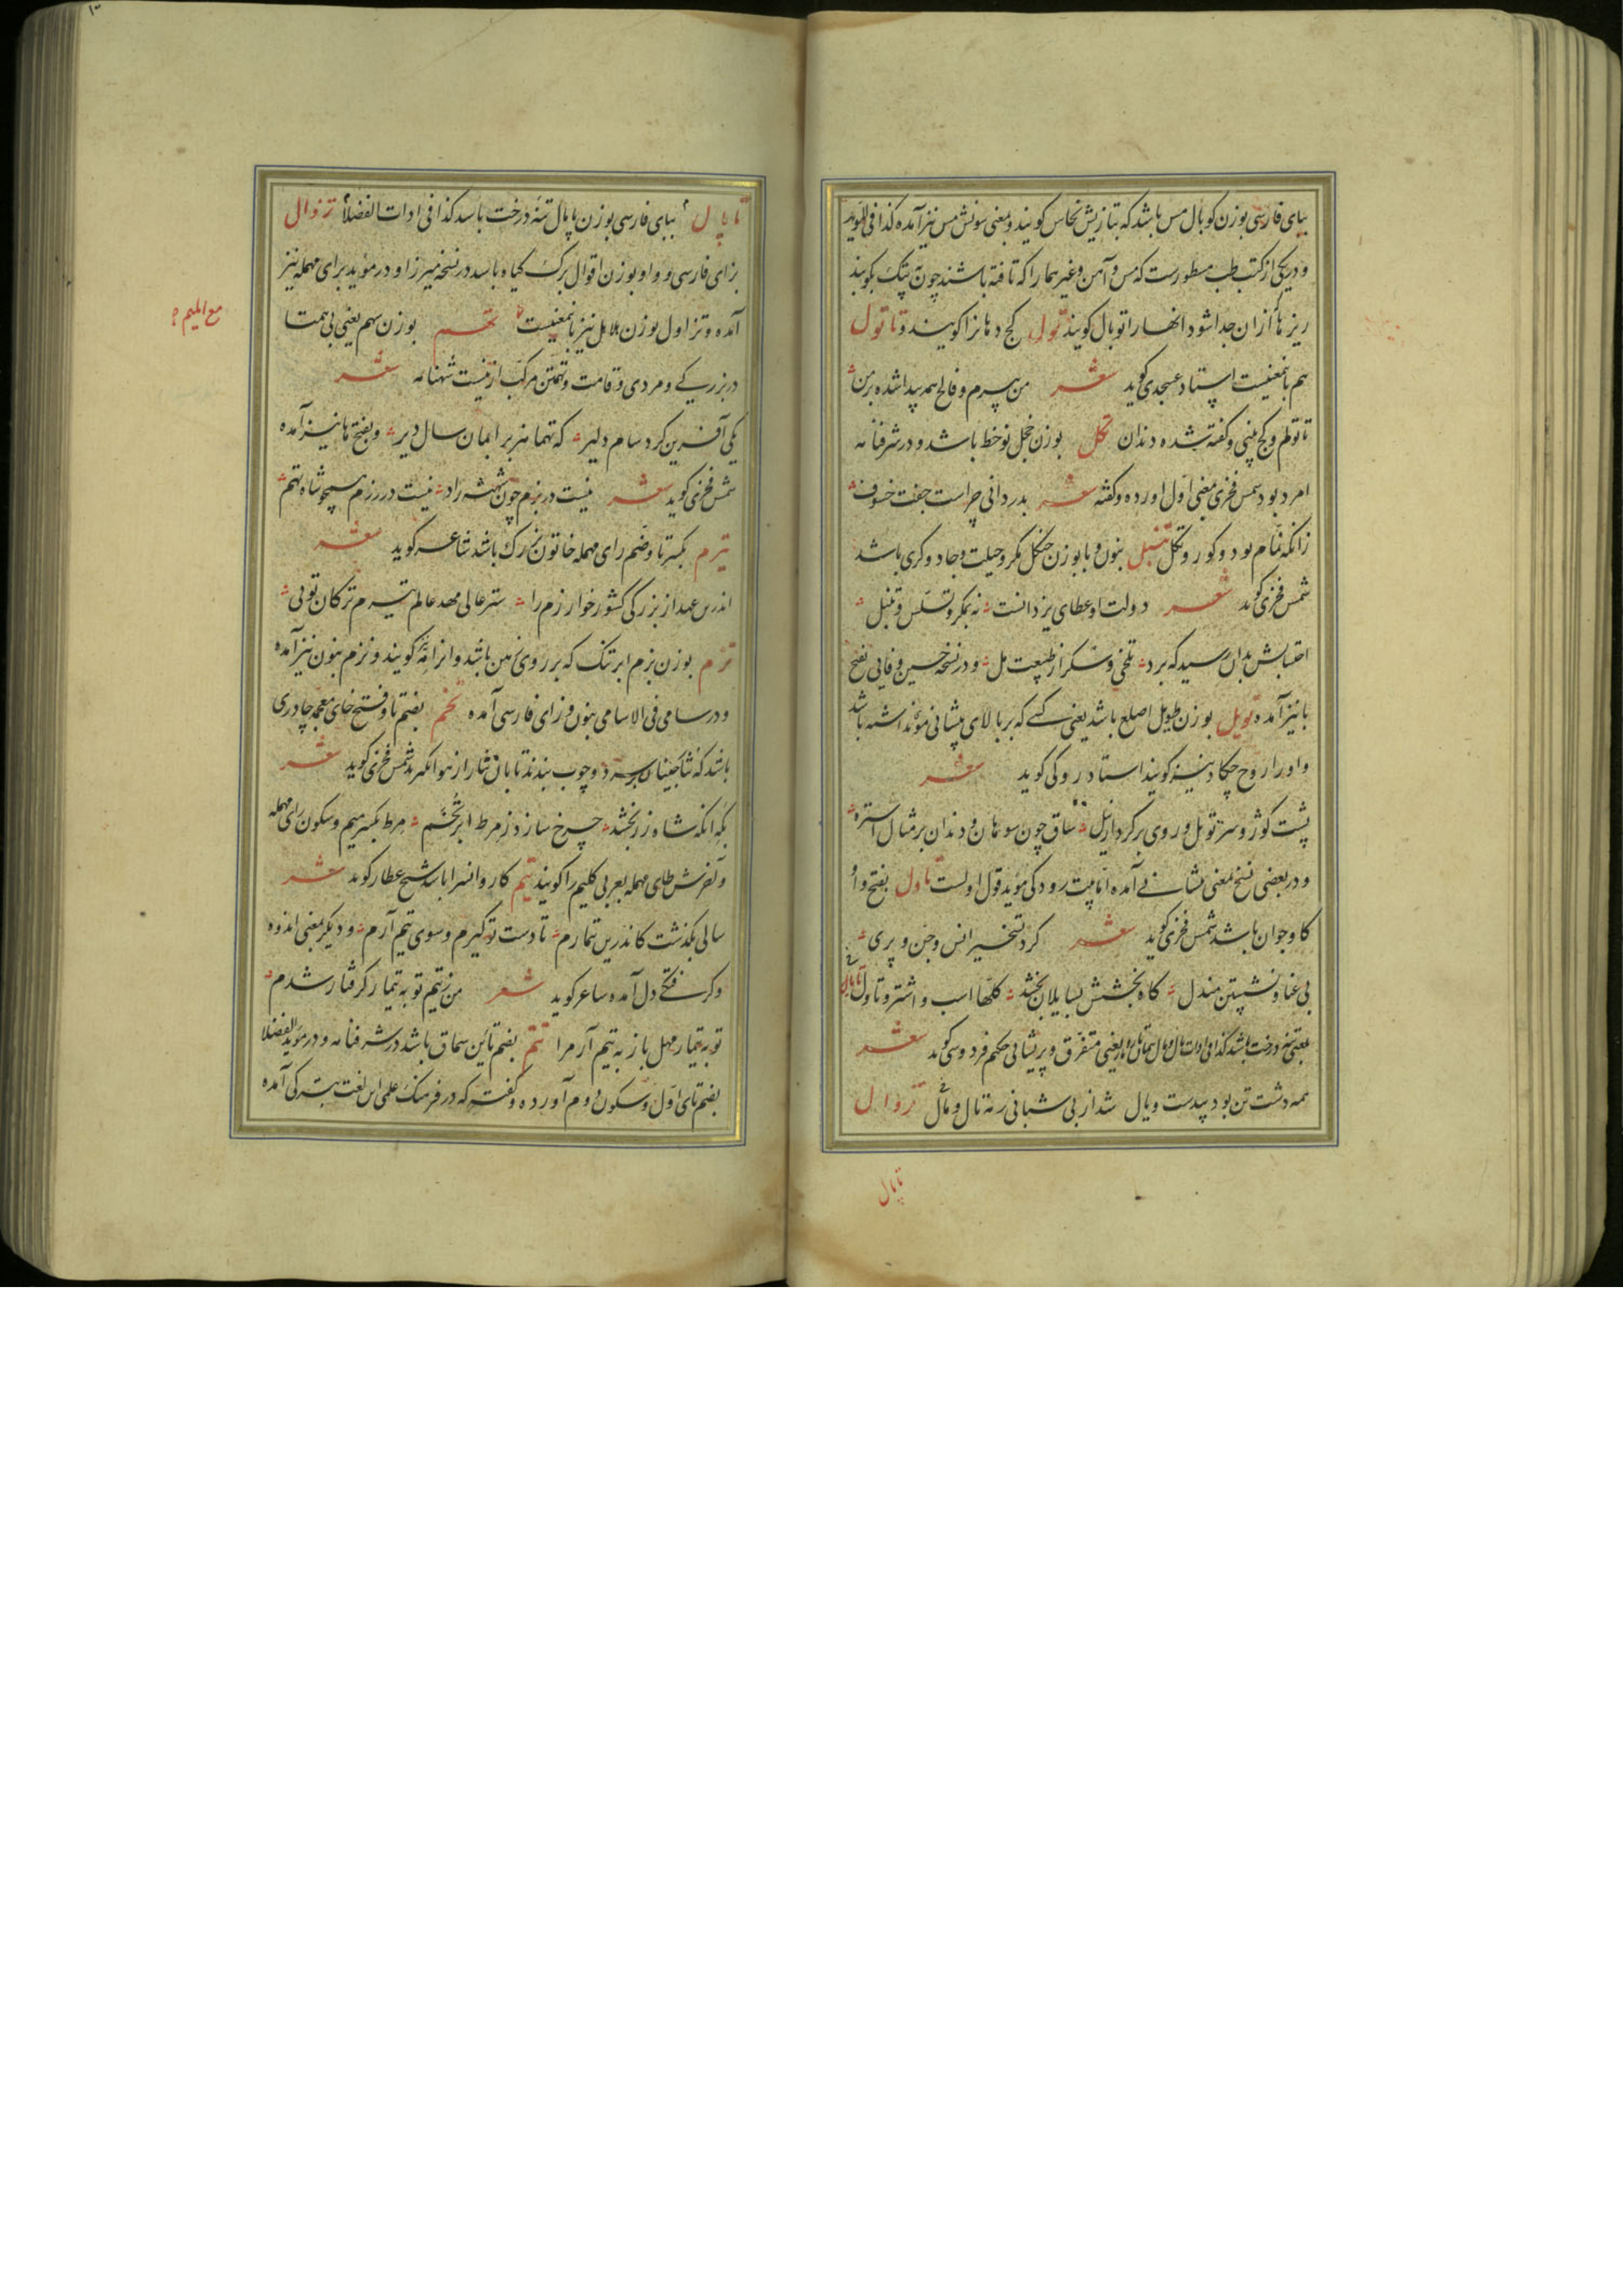 ببای فارسی بوزن کوبال مس باشد که بتازیش نحاس کویند و بمعنی سونش مس نیز آمده کذا فی المؤید
و در یکی از کتب طب مسطورست که مس و آهن و غیرهما را که تافته باشند چون بتپک بکوبند
ریزها از ان جدا شود انها را توبال کویند تول کج دهانرا کویند و تاتول
هم بانمعنیست استاد عسجدی کوید شعر من پیرم و فالج همه پیدا شده بر من
تاتولم و کج بینی و کفته شده دندان تکل بوزن خجل نوخط باشد و در شرفنامه
امرد بود شمس فخری معنی اول اورده و کفته شعر بدر دانی چراست جفت خسوف
زانکه نمام بود و کور و تکل تنبل بنون و با بوزن جنکل مکر و حیلت و جادوکری باشد
شمس فخری کوید شعر دولت او عطای یزدانست نه بمکر و تسلس و تنبل
احتسابش بدان رسید که برد تلخی و سکر از طبیعت مل و در نسخه حسین وفایی بفتح
با نیز آمده تویل بوزن طویل اصلع باشد یعنی کسی که بر بالای پیشانی موند اشته باشد
و اورا روخ چکاد نیز کویند استاد رودکی کوید شعر
پشت کوژ و سر تویل و روی بر کردار نیل ساق چون سوهان و دندان بر مثال استره
و در بعضی نسخ بمعنی پیشانی آمده اما بیت رودکی مؤید قول اولست تاول بفتح واو
کاو جوان باشد شمس فخری کوید شعر کرد تسخیر انس و جن و پری
بی عنا و نشستن مندل کاه بخشش بسایلان بخشد کلها اسب و اشتر و تاول تاپال
بمعنی تنه درخت باشد کذا فی ادات تال و مال بمعنی متفرق و پریشانی حکیم فردوسی کوید شعر
همه دشت تن بود بیدست و یال شد از بی شبانی رمه تال و مال تزوال
تاپال
تاپال ببای فارسی بوزن پاپال تنه درخت باشد کذا فی ادات الفضلا تزوال
بزای فارسی و واو بوزن اقوال برک کیاه باشد در نسخه میرزا و در مؤید برای مهمله نیز
آمده و تزاول بوزن بلابل نیز بانمعنیست تهم بوزن سهم یعنی بی همتا
مع المیم
در بزرکی و مردی و قامت و تهمتن مرکب ازینست شهنامه شعر
یکی آفرین کرد سام دلیر که تهما هژبرا بمان سال دیر و بفتح ها نیز آمده
شمس فخری کوید شعر نیست در بزم چون شهنشه راد نیست در رزم همچو شاه تهم
ترم بکسر تا و ضم رای مهمله خاتون بزرک باشد شاعر کوید شعر
اندرین عهد از بزرکی کشور خوارزم را ستر عالی مهد عالم تیرم ترکان تویی
تزم بوزن بزم ابر تنک که بر روی زمین باشد و انرا کویند و نزم بنون نیز آمده
و در سامی فی الاسامی بنون و زای فارسی آمده تخم بضم تا و فتح خای معجمه چادری
باشد که بر سر دو چوب بندند تا بان نثار از هوا بکیرند شمس فخری کوید شعر
بکه انکه شاه زر بخشد چرخ سازد ز مرط ابر تخم مرط بکسر میم و سکون رای مهمله
و آخرش طای مهمله بعربی کلیم را کویند تیم کاروانسرا باشد شیخ عطار کوید شعر
سالی بکذشت کاندرین تیمارم تا دست تو کیرم و سوی تیم آرم و دیکر بمعنی اندوه
و کرفتکی دل آمده شاعر کوید شعر من ز تیم تو به تیمار کرفتار شدم
تو به تیمار مهل باز به تیم آر مرا تتم بضم تائین سماق باشد در شرفنامه و در مؤید الفضلا
بضم تای اول و سکون دوم آورده و کفته که در فرهنک علمی این لغت بترکی آمده